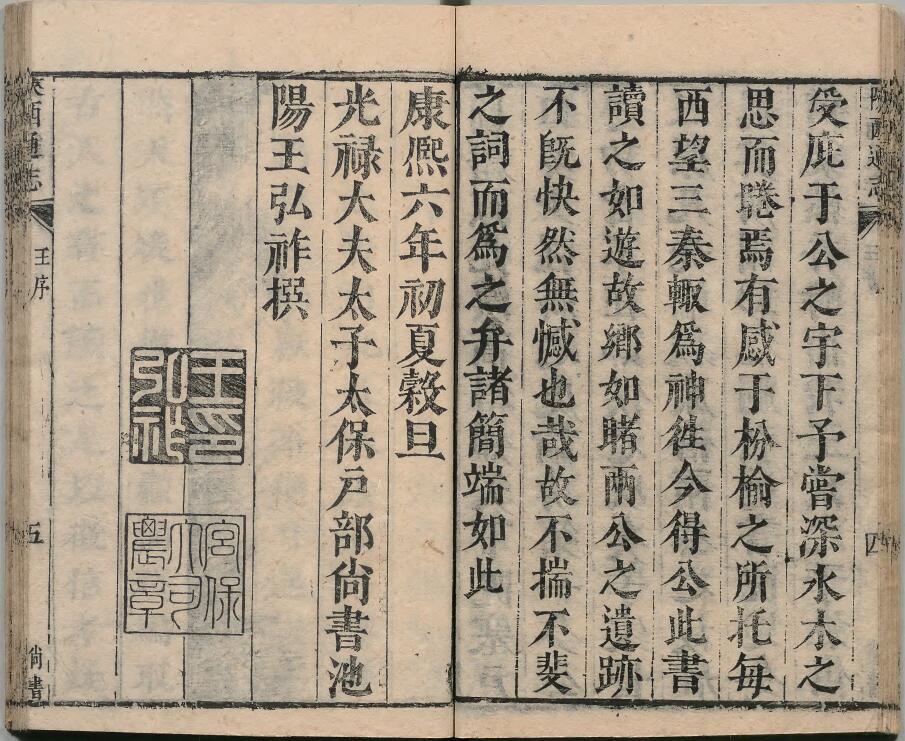 受庇于公之宇下予嘗深水木之
思而睠焉有感于枌榆之所托每
西望三秦輙爲神徃今得公此書
讀之如遊故鄉如睹兩公之遺跡
不旣快然無憾也哉故不揣不斐
之詞而爲之弁諸簡端如此
康熙六年初夏穀旦
光禄大夫太子太保戸部尙書池
陽王弘祚撰
王弘祚印
宮保大司農章
陝西通志
王序
五
尙書
陝西通志
四